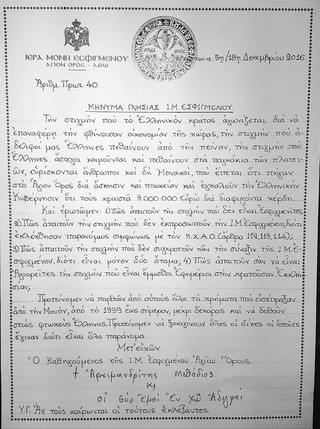 ΙΕΡΑ ΜΟΝΗ ΕΣΦΙΓΜΕΝΟΥ
ΑΓΙΟΝ ΟΡΟΣ - ΑΘΩ
5η/18η Δεκεμβρίου 2016.
Ἀριθμ. Πρωτ. 40
ΜΗΝΥΜΑ ΓΝΗΣΙΑΣ Ι.Μ ΕΣΦΙΓΜΕΝΟΥ
Τήν στιγμήν πού τό Ἑλληνικόν κράτος ἀγωνίζεται διά νά
ἐπαναφέρῃ τήν φθίνουσαν οἰκονομίαν τῆς χώρας, τήν στιγμήν πού ἀ-
δελφοί μας Ἕλληνες πεθαίνουν ἀπό τήν πεῖναν, τήν στιγμήν πού
Ἕλληνες ἄστεγοι κοιμοῦνται καί πεθαίνουν στά παγκάκια τῶν πλατει-
ῶν, εὑρίσκονται ἄνθρωποι καί δή Μοναχοί, πού ἔπειτα ὅτι πῆγαν
στό Ἅγιον Ὄρος διά ἄσκησιν καί πτωχείαν καί
Κυβέρνησιν ὅτι τούς χρωστᾶ 3.000.000 Εὐρώ διά διαφυγόντα κέρδη.
Καί ἐρωτῶμεν: 1) Πῶς ἀπαιτοῦν τήν στιγμήν πού δέν εἶναι Ἐσφιγμενῖτες;
2) Πῶς ἀπαιτοῦν τήν στιγμήν πού δέν ἐκπροσωποῦν τήν Ι.Μ Ἐσφιγμένου, διότι
ἐξελέχθησαν παρανόμως συμφώνως μέ τόν Κ.Χ.Α.Ο. (ἄρθρα 112, 113, 114);
3) Πῶς ἀπαιτοῦν τήν στιγμήν πού δέν συγκροτοῦν κἄν τήν σύναξιν τῆς Ι.Μ Ἐ-
σφιγμένου, διότι εἶναι μόνον δύο ἄτομα; 4) Πῶς ἀπαιτοῦν σάν νά εἶναι
Ἁγιορεῖτες τήν στιγμήν πού εἶναι ἔμμισθοι Ἐφημέριοι στήν κρατοῦσαν Ἐκκλη-
σίαν;
Προτείνομεν νά παρθοῦν ἀπό αὐτούς ὅλα τά χρήματα πού εἰσέπραξαν
ἀπό τήν Μονήν, ἀπό τό 1999 ἕως σήμερον, μέχρι δεκάρας καί νά δοθοῦν
στούς φτωχούς Ἕλληνας. Προτείνομεν νά ξαναγίνουν ὅλες οἱ δίκες οἱ ὁποῖες
ἔγιναν διότι εἶναι ὅλα παράνομα.
Μετ' εὐχῶν
Ὁ Καθηγούμενος τῆς Ι.Μ Ἐσφιγμένου Ἁγίου Ὄρους.
† Ἀρχιμανδρίτης Μεθόδιος
κ)
οἱ σύν ἐμοί ἐν Χῷ Ἀδελφοί
Υ.Γ. Ἄς τούς χαίρωνται οἱ τούτους ἐκλέξαντες.